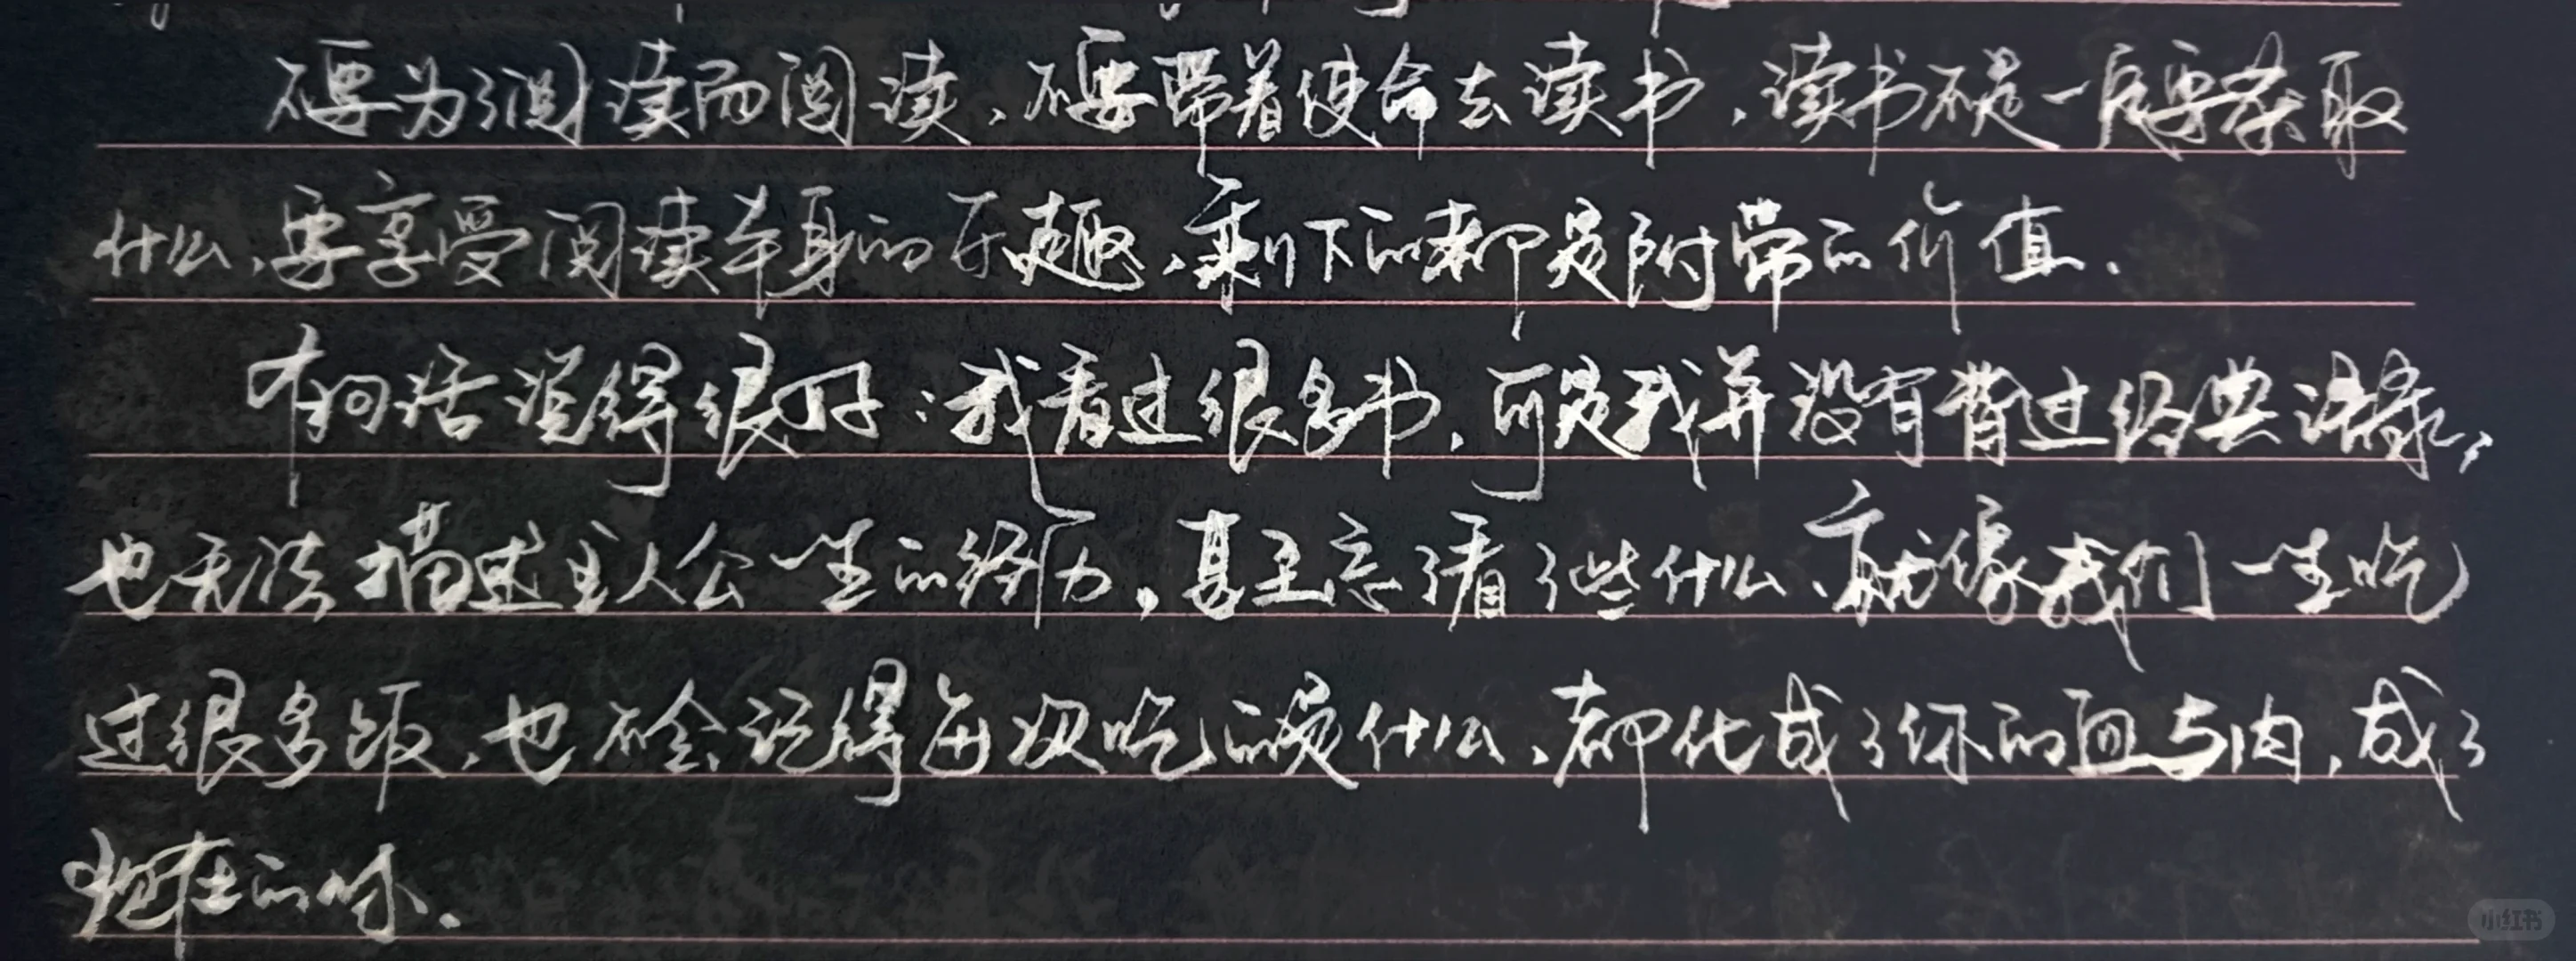 不要为了阅读而阅读、不要带着使命去读书，读书不是一定要获取
什么，要享受阅读本身的乐趣，剩下的都是附带的价值.
有句话说得很好：我看过很多书，可是我并没有背过经典语录，
也无法描述主人公一生的经历，甚至忘了看了些什么、就像我们一生吃
过很多饭，也不会记得每次吃的是什么、都化成了你的血与肉，成了
现在的你.
小红书